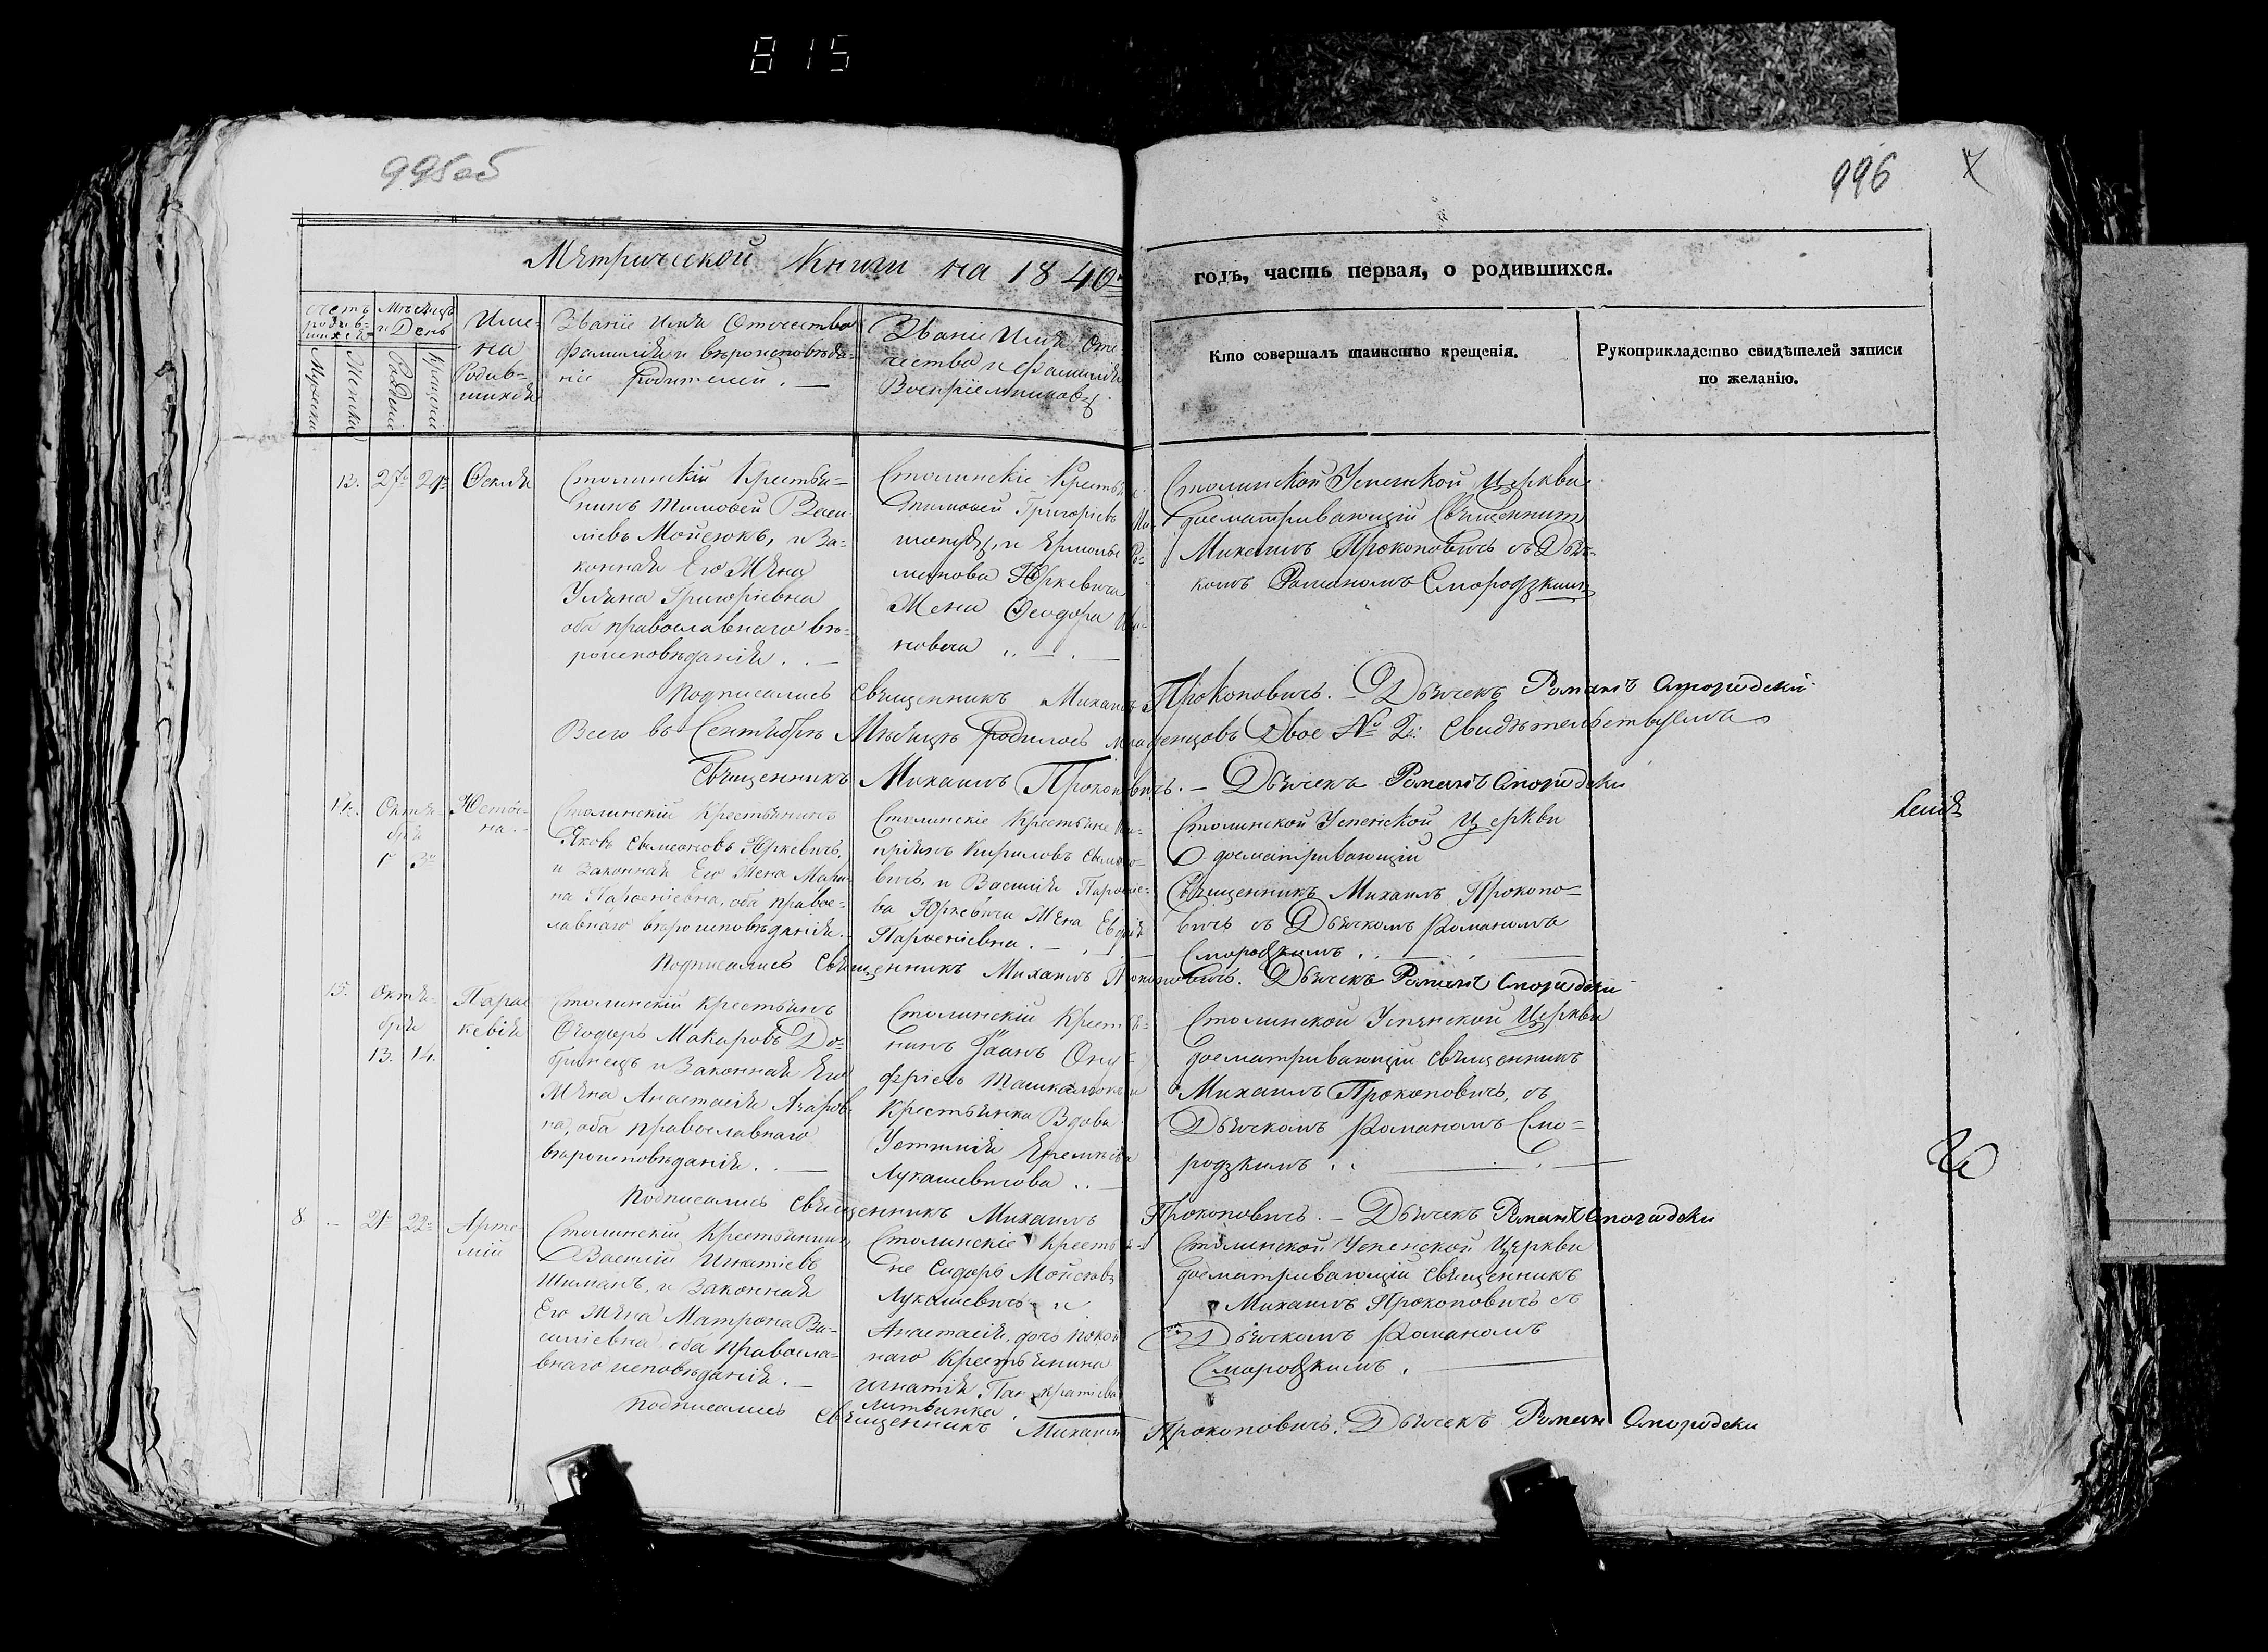 815
995об
996
Метрической Книги на 1840й
годъ, часть первая, о родившихся.
счетъ родив-шихся
Мужеска
Женска
Мѣсяцъ и День
Рожденія
Крещенія
Име-
на
Родив-
шихся
Званіе Имя Отчество
фамилія и вѣроисповѣда-
ніе родителей. —
Званіе Имя Оте-
чество и фамилія
Воспріемниковъ.
Кто совершалъ таинство крещенія.
Рукоприкладство свидѣтелей записи
по желанію.
13. 27. Ѳеклѧ
Столинскій Крестья-
нинъ Тимоѳей Васи-
ліевъ Мойсеюкъ, и За-
конная Его Жена
Уліяна Григоріевна
оба православнаго вѣ-
роисповѣданія. . —
Столинскіе Крестьяне
Григоріевъ
и
Юркевича
Жена Ѳеодора
новна . . — . —
Столинской Успенской Церкви
досматривающій Священникъ
Михаилъ Прокоповичъ съ Дья-
комъ Романомъ Смородзкимъ
Подписались Священникъ Михаилъ Прокоповичъ. — Дьячекъ Романъ Смородски
Всего въ Сентябрѣ Мѣсяцѣ родилось младенцовъ Двое № 2: Свидѣтельствуемъ
Священникъ Михаилъ Прокоповичъ. — Дьячекъ Романъ Смородски
14. Октя-
бря
1 3
Юсти-
на. -
Столинскій Крестьянинъ
Яковъ Сѵмеоновъ Юркевичъ,
и Законная Его Жена Мари-
на Парѳеніевна, оба право-
лавнаго вѣроисповѣданія.
Столинскіе Крестьяне Ки-
пріянъ Кириловъ
вичъ, и Василія Парѳеніе-
ва Юркевича Жена Евдокія
Парѳеніевна. — . —
Столинской Успенской Церкви
досматривающій
Священникъ Михаилъ Прокопо-
вичъ съ Дьячкомъ Романомъ
Смородзкимъ . . —
Подписались Священникъ Михаилъ Прокоповичъ. Дьячекъ Романъ Смородски
15. Октя-
бря
13. 14.
Парас
кевія
Столинскій Крестьянинъ
Ѳеодоръ Макаровъ До-
бринецъ и Законная Его
Жена Анастасія Азаров-
на, оба православнаго
вѣроисповѣданія. . —
Столинскій Крестья-
нинъ Іоанъ Ону-
фріевъ и
Крестьянка Вдова
Устинія Еремѣева
Лукашевичова . . —
Столинской Успенской Церкви
досматривающій Священникъ
Михаилъ Прокоповичъ, съ
Дьячкомъ Романомъ Смо-
родзкимъ . . —
Подписались Священникъ Михаилъ Прокоповичъ. — Дьячекъ Романъ Смородски
8. — 21 22 Арте-
мій
Столинскій Крестьянинъ
Василій Игнатіевъ
Шиманъ, и Законная
Его Жена Матрона Ва-
силіевна оба правосла-
внаго исповѣданія. . —
Столинскіе Крестья-
не Сидоръ Мойсеевъ
Лукашевичъ и
Анастасія, дочь покой
наго Крестьянина
Игнатія Панкратіева
Литвинка
Столинской Успенской Церкви
досматривающій Священникъ
Михаилъ Прокоповичъ съ
Дьячкомъ Романомъ
Смородзкимъ. —
Подписались Священникъ Михаилъ Прокоповичъ. Дьячекъ Романъ Смородски